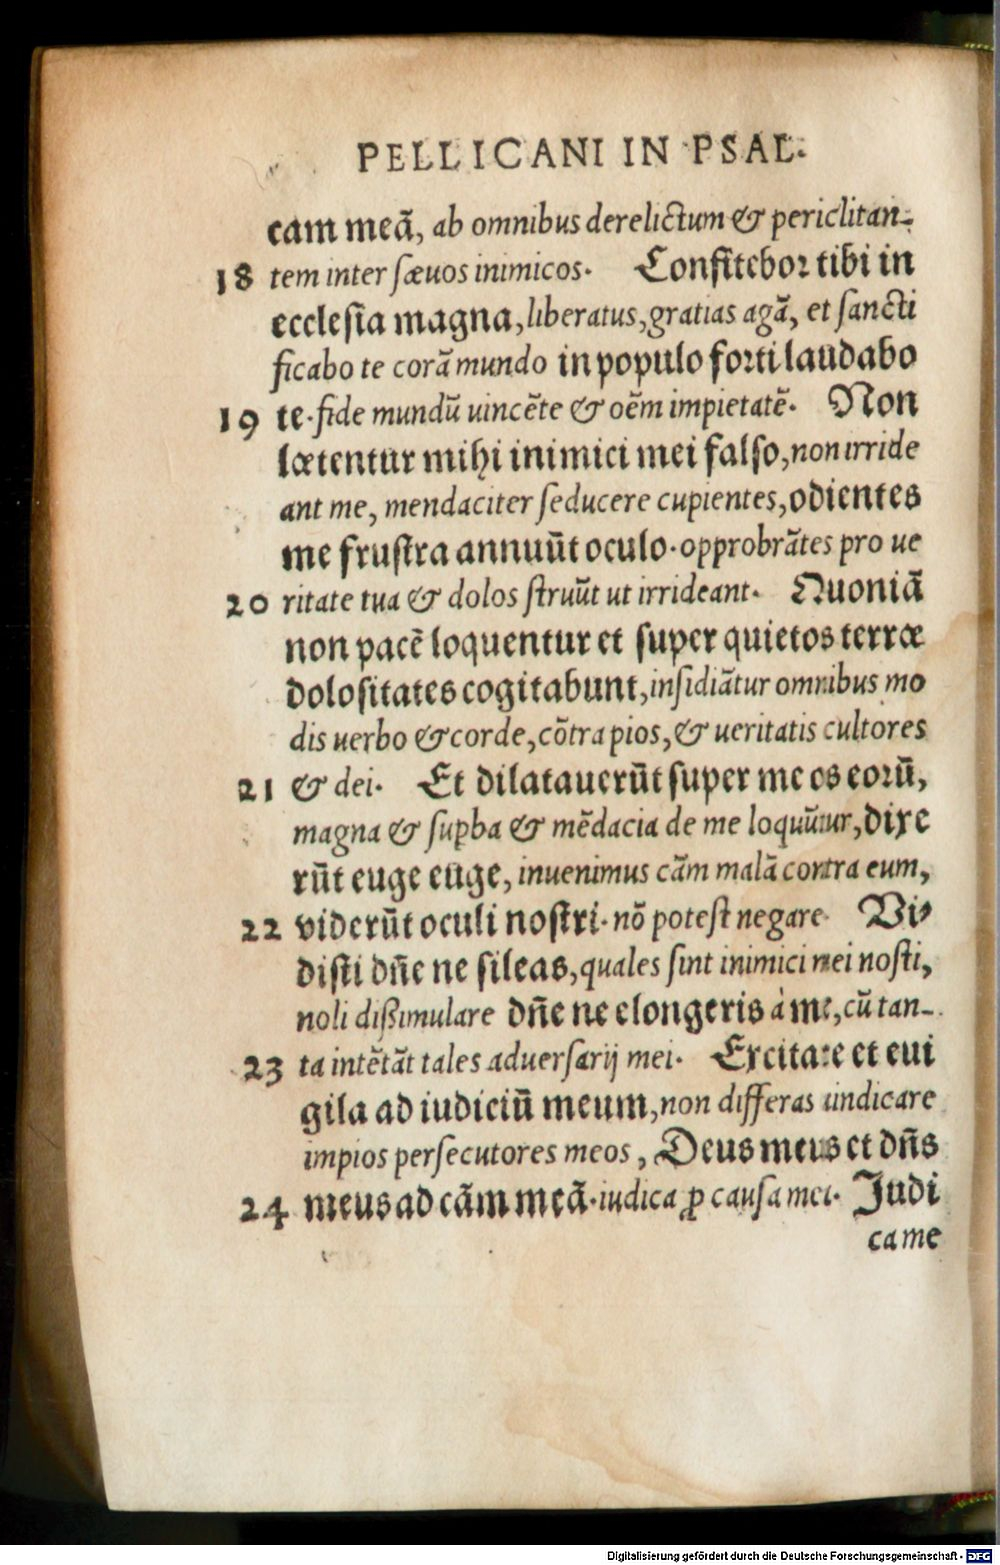 PELLICANI IN PSAL.
cam meã, ab omnibus derelictum & periclitan-
18 tem inter sæuos inimicos. Confitebor tibi in
ecclesia magna, liberatus, gratias agã, et sancti
ficabo te corã mundo in populo forti laudabo
19 te. fide mundũ uincẽte & oẽm impietatẽ. Non
lætentur mihi inimici mei falso, non irride
ant me, mendaciter seducere cupientes, odientes
me frustra annuũt oculo. opprobrãtes pro ue
20 ritate tua & dolos struũt ut irrideant. Quoniã
non pacẽ loquentur et super quietos terræ
dolositates cogitabunt, insidiãtur omnibus mo
dis uerbo & corde, cõtra pios, & ueritatis cultores
21 & dei. Et dilatauerũt super me os eorũ,
magna & supba & mẽdacia de me loquũtur, dixe
rũt euge euge, inuenimus cãm malã contra eum,
22 viderũt oculi nostri. nõ potest negare Vi-
disti dñe ne sileas, quales sint inimici mei nosti,
noli dissimulare dñe ne elongeris à me, cũ tan-
23 ta intẽtãt tales aduersarij mei. Excitare et eui
gila ad iudiciũ meum, non differas uindicare
impios persecutores meos, Deus meus et dñs
24 meus ad cãm meã. iudica ꝓ causa mei. Judi
ca me
Digitalisierung gefördert durch die Deutsche Forschungsgemeinschaft - DFG